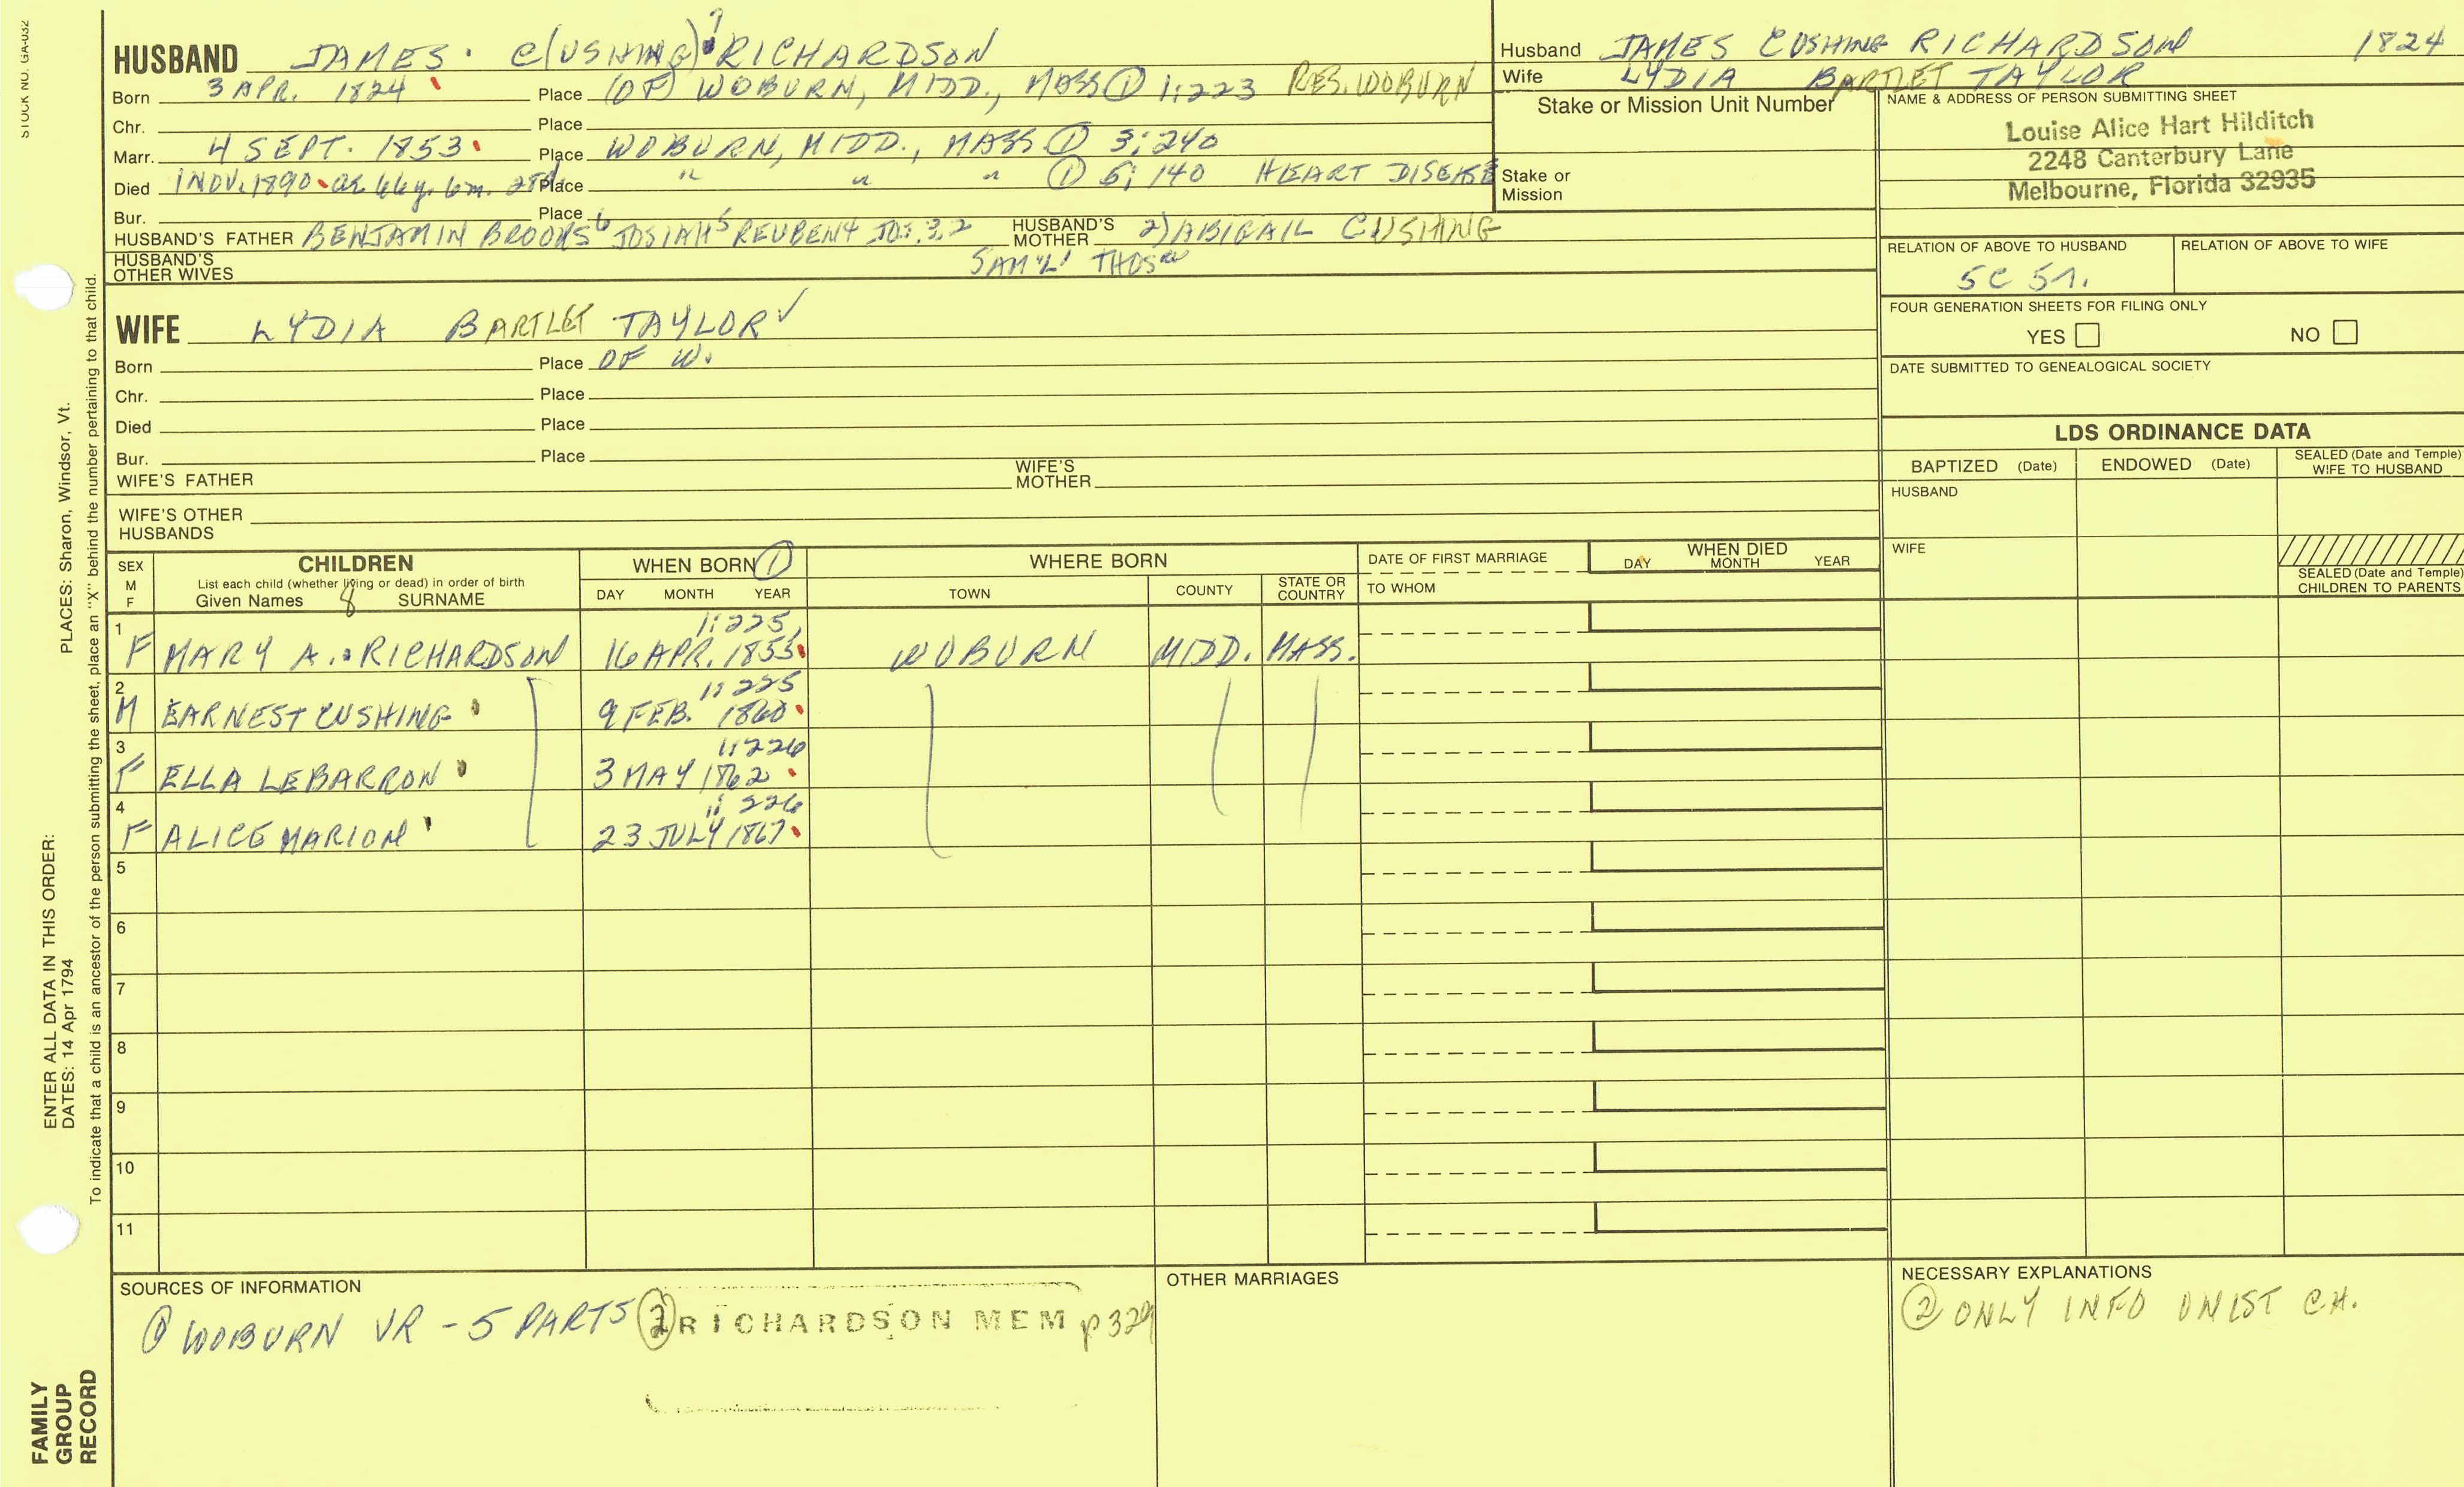 STOCK NO. GA-032
HUSBAND JAMES C(USHING)? RICHARDSON
Born 3 APR. 1824 Place (OF) WOBURN, MIDD., MASS ① 1:223 RES. WOBURN
Chr. Place
Marr. 4 SEPT. 1853 Place WOBURN, MIDD., MASS ① 3:240
Died 1 NOV. 1890 ae 66y. 6m. 28d. Place " " " ① 5:140 HEART DISEASE
Bur. Place
HUSBAND'S FATHER BENJAMIN BROOKS6 JOSIAH5 REUBEN4 JOS.3,2 HUSBAND'S MOTHER 2) ABIGAIL CUSHING
HUSBAND'S OTHER WIVES SAM'L1 THOS
WIFE LYDIA BARTLET TAYLOR ✓
Born Place OF W.
Chr. Place
Died Place
Bur. Place
WIFE'S FATHER WIFE'S MOTHER
WIFE'S OTHER HUSBANDS
Husband JAMES CUSHING RICHARDSON 1824
Wife LYDIA BARTLET TAYLOR
Stake or Mission Unit Number
Stake or Mission
NAME & ADDRESS OF PERSON SUBMITTING SHEET
Louise Alice Hart Hilditch
2248 Canterbury Lane
Melbourne, Florida 32935
RELATION OF ABOVE TO HUSBAND RELATION OF ABOVE TO WIFE
5C 5r.
FOUR GENERATION SHEETS FOR FILING ONLY
YES NO
DATE SUBMITTED TO GENEALOGICAL SOCIETY
LDS ORDINANCE DATA
BAPTIZED (Date) ENDOWED (Date) SEALED (Date and Temple) WIFE TO HUSBAND
HUSBAND
WIFE
SEALED (Date and Temple) CHILDREN TO PARENTS
SEX M F
CHILDREN
List each child (whether living or dead) in order of birth
Given Names 8 SURNAME
WHEN BORN ①
DAY MONTH YEAR
WHERE BORN
TOWN COUNTY STATE OR COUNTRY
DATE OF FIRST MARRIAGE
TO WHOM
WHEN DIED
DAY MONTH YEAR
1:225,
1 F MARY A. RICHARDSON 16 APR. 1855 WOBURN MIDD. MASS.
1:225
2 M EARNEST CUSHING 9 FEB. 1860
1:226
3 F ELLA LEBARRON 3 MAY 1862
1: 226
4 F ALICE MARION 23 JULY 1867
5
6
7
8
9
10
11
SOURCES OF INFORMATION
① WOBURN VR - 5 PARTS ② RICHARDSON MEM p 329
OTHER MARRIAGES
NECESSARY EXPLANATIONS
② ONLY INFO ON 1ST CH.
PLACES: Sharon, Windsor, Vt.
To indicate that a child is an ancestor of the person submitting the sheet, place an "X" behind the number pertaining to that child.
ENTER ALL DATA IN THIS ORDER:
DATES: 14 Apr 1794
FAMILY
GROUP
RECORD